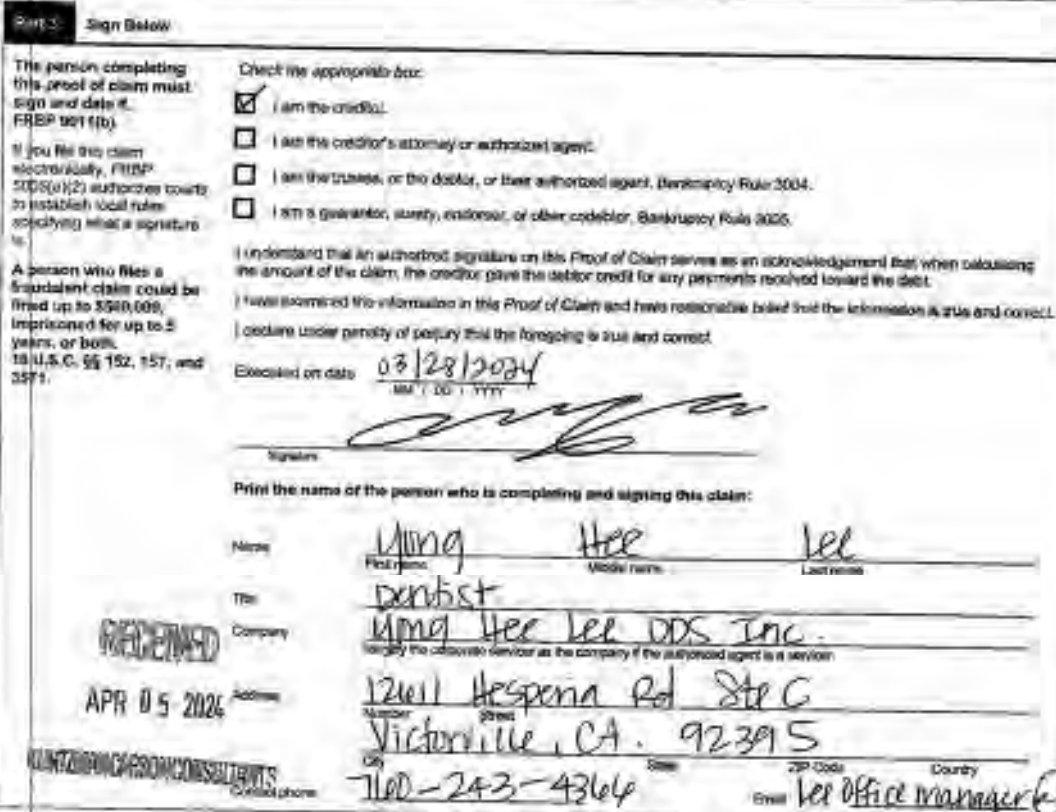 Part 3: Sign Below
The person completing
this proof of claim must
sign and date it.
FRBP 9011(b).
If you file this claim
electronically, FRBP
5005(a)(2) authorizes courts
to establish local rules
specifying what a signature
is.
A person who files a
fraudulent claim could be
fined up to $500,000,
imprisoned for up to 5
years, or both.
18 U.S.C. §§ 152, 157, and
3571.
Check the appropriate box:
I am the creditor.
I am the creditor's attorney or authorized agent.
I am the trustee, or the debtor, or their authorized agent. Bankruptcy Rule 3004.
I am a guarantor, surety, endorser, or other codebtor. Bankruptcy Rule 3005.
I understand that an authorized signature on this Proof of Claim serves as an acknowledgement that when calculating
the amount of the claim, the creditor gave the debtor credit for any payments received toward the debt.
I have examined the information in this Proof of Claim and have reasonable belief that the information is true and correct.
I declare under penalty of perjury that the foregoing is true and correct.
Executed on date 03/28/2024
MM / DD / YYYY
Signature
Print the name of the person who is completing and signing this claim:
Name Hee Lee
First name Middle name Last name
Title Dentist
Company Hee Lee DDS Inc.
Identify the corporate servicer as the company if the authorized agent is a servicer.
RECEIVED
APR 05 2024
KURTZMAN CARSON CONSULTANTS
Address Hesperia Rd Ste C
Number Street
Victorville, CA. 92395
City State ZIP Code Country
Contact phone 760-243-4366 Email Lee Office manager